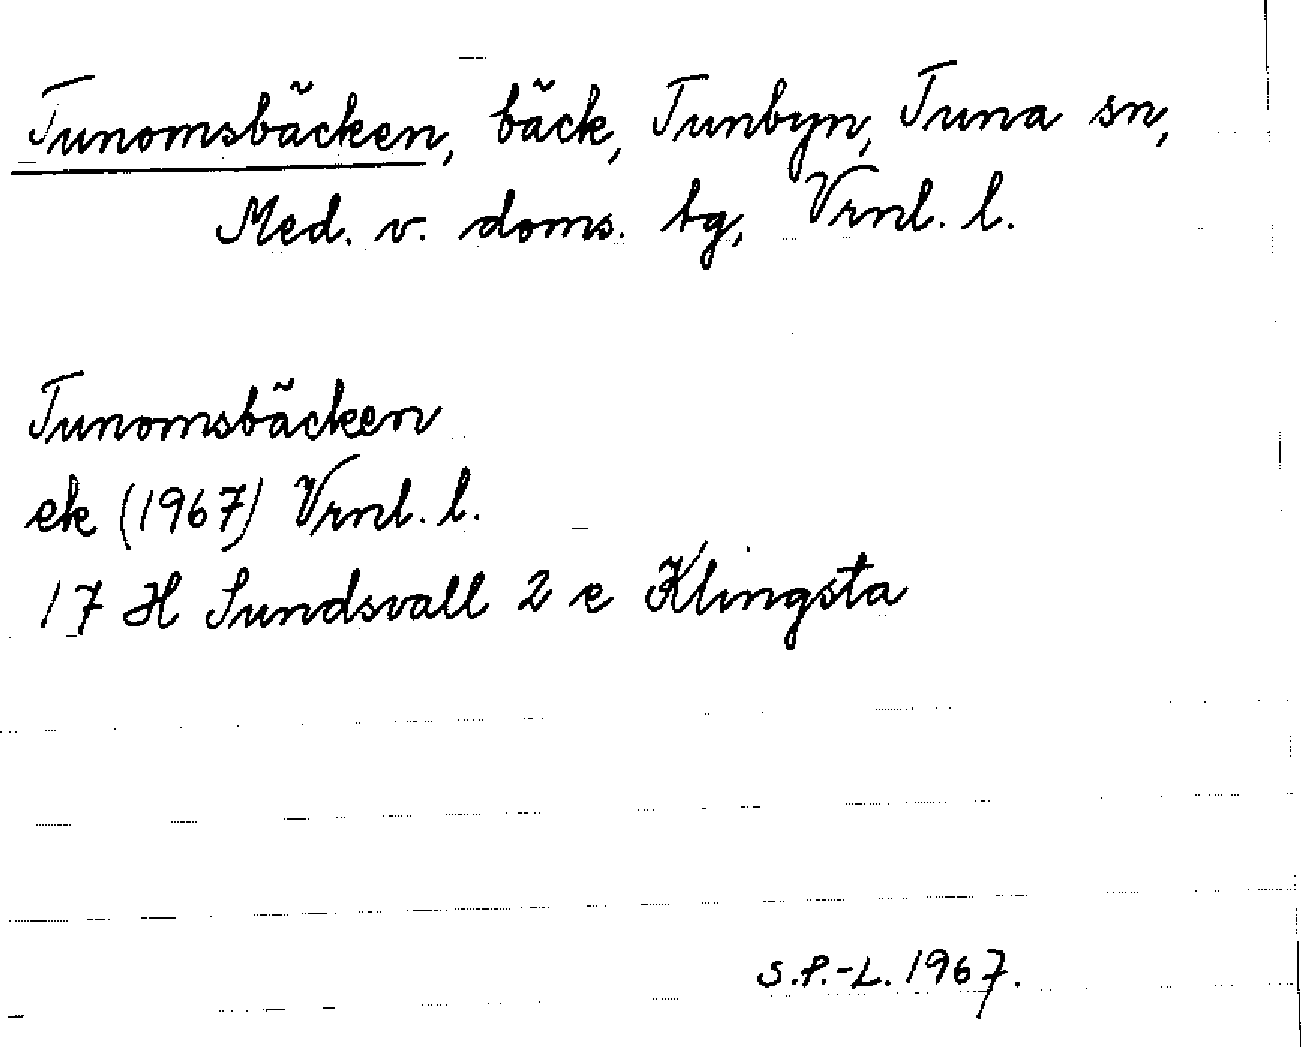 Tunomsbäcken, bäck, Tunbyn, Tuna sn,
Med. v. doms. tg, Vrnl. l.
Tunomsbäcken
ek (1967) Vrnl. l.
17 H Sundsvall 2 e Klingsta
S.P.-L. 1967.